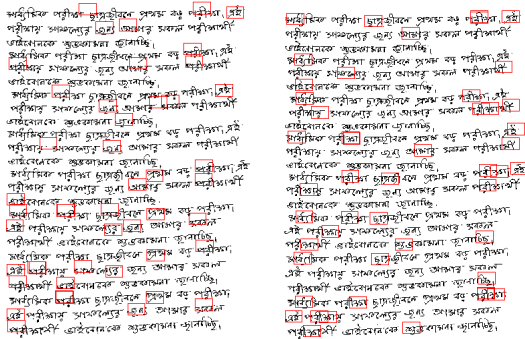 মাধ্যমিক পরীক্ষা ছাত্রজীবনে প্রথম বড় পরীক্ষা, এই
পরীক্ষায় সাফল্যের জন্য আমার সকল পরীক্ষার্থী
ভাইবোনকে শুভকামনা জানাচ্ছি
মাধ্যমিক পরীক্ষা ছাত্রজীবনে প্রথম বড় পরীক্ষা, এই
পরীক্ষায় সাফল্যের জন্য আমার সকল পরীক্ষার্থী
ভাইবোনকে শুভকামনা জানাচ্ছি
মাধ্যমিক পরীক্ষা ছাত্রজীবনে প্রথম বড় পরীক্ষা, এই
পরীক্ষায় সাফল্যের জন্য আমার সকল পরীক্ষার্থী
ভাইবোনকে শুভকামনা জানাচ্ছি
মাধ্যমিক পরীক্ষা ছাত্রজীবনে প্রথম বড় পরীক্ষা, এই
পরীক্ষায় সাফল্যের জন্য আমার সকল পরীক্ষার্থী
ভাইবোনকে শুভকামনা জানাচ্ছি
মাধ্যমিক পরীক্ষা ছাত্রজীবনে প্রথম বড় পরীক্ষা, এই
পরীক্ষায় সাফল্যের জন্য আমার সকল পরীক্ষার্থী
ভাইবোনকে শুভকামনা জানাচ্ছি
মাধ্যমিক পরীক্ষা ছাত্রজীবনে প্রথম বড় পরীক্ষা,
এই পরীক্ষায় সাফল্যের জন্য আমার সকল
পরীক্ষার্থী ভাইবোনকে শুভকামনা জানাচ্ছি,
মাধ্যমিক পরীক্ষা ছাত্রজীবনে প্রথম বড় পরীক্ষা,
এই পরীক্ষায় সাফল্যের জন্য আমার সকল
পরীক্ষার্থী ভাইবোনকে শুভকামনা জানাচ্ছি,
মাধ্যমিক পরীক্ষা ছাত্রজীবনে প্রথম বড় পরীক্ষা,
এই পরীক্ষায় সাফল্যের জন্য আমার সকল
পরীক্ষার্থী ভাইবোনকে শুভকামনা জানাচ্ছি,
মাধ্যমিক পরীক্ষা ছাত্রজীবনে প্রথম বড় পরীক্ষা, এই
পরীক্ষায় সাফল্যের জন্য আমার সকল পরীক্ষার্থী
ভাইবোনকে শুভকামনা জানাচ্ছি
মাধ্যমিক পরীক্ষা ছাত্রজীবনে প্রথম বড় পরীক্ষা, এই
পরীক্ষায় সাফল্যের জন্য আমার সকল পরীক্ষার্থী
ভাইবোনকে শুভকামনা জানাচ্ছি
মাধ্যমিক পরীক্ষা ছাত্রজীবনে প্রথম বড় পরীক্ষা, এই
পরীক্ষায় সাফল্যের জন্য আমার সকল পরীক্ষার্থী
ভাইবোনকে শুভকামনা জানাচ্ছি
মাধ্যমিক পরীক্ষা ছাত্রজীবনে প্রথম বড় পরীক্ষা, এই
পরীক্ষায় সাফল্যের জন্য আমার সকল পরীক্ষার্থী
ভাইবোনকে শুভকামনা জানাচ্ছি
মাধ্যমিক পরীক্ষা ছাত্রজীবনে প্রথম বড় পরীক্ষা, এই
পরীক্ষায় সাফল্যের জন্য আমার সকল পরীক্ষার্থী
ভাইবোনকে শুভকামনা জানাচ্ছি
মাধ্যমিক পরীক্ষা ছাত্রজীবনে প্রথম বড় পরীক্ষা,
এই পরীক্ষায় সাফল্যের জন্য আমার সকল
পরীক্ষার্থী ভাইবোনকে শুভকামনা জানাচ্ছি,
মাধ্যমিক পরীক্ষা ছাত্রজীবনে প্রথম বড় পরীক্ষা,
এই পরীক্ষায় সাফল্যের জন্য আমার সকল
পরীক্ষার্থী ভাইবোনকে শুভকামনা জানাচ্ছি,
মাধ্যমিক পরীক্ষা ছাত্রজীবনে প্রথম বড় পরীক্ষা,
এই পরীক্ষায় সাফল্যের জন্য আমার সকল
পরীক্ষার্থী ভাইবোনকে শুভকামনা জানাচ্ছি,